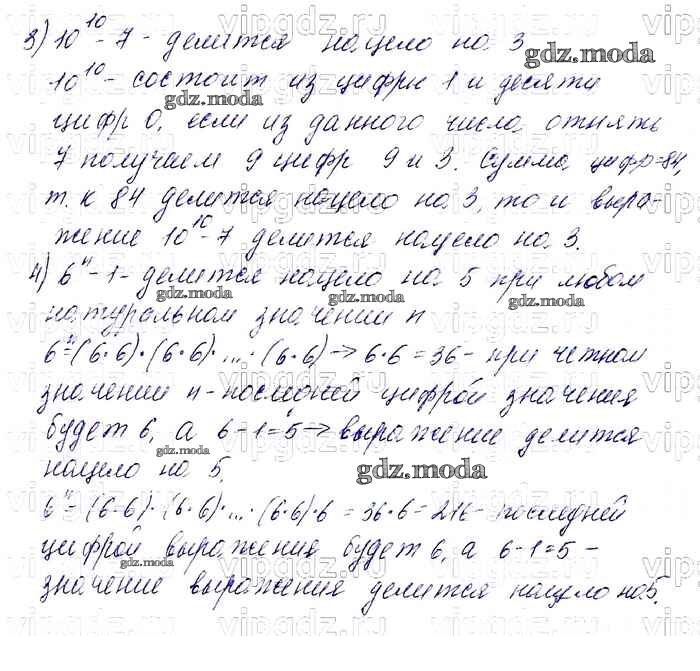 3) 10¹⁰ - 7 - делится нацело на 3
10¹⁰ - состоит из цифры 1 и десяти
цифр 0, если из данного числа отнять
7 получаем 9 цифр 9 и 3. Сумма цифр = 84,
т.к 84 делится нацело на 3, то и выра-
жение 10¹⁰ - 7 делится нацело на 3.
4) 6ⁿ - 1 - делится нацело на 5 при любом
натуральном значении n
6ⁿ = (6·6)·(6·6)·...·(6·6) → 6·6 = 36 - при четном
значении n - последней цифрой значения
будет 6, а 6 - 1 = 5 → выражение делится
нацело на 5.
6ⁿ = (6·6)·(6·6)·...·(6·6)·6 = 36·6 = 216 - последней
цифрой выражения будет 6, а 6-1=5 -
значение выражения делится нацело на 5.
gdz.moda
vipgdz.ru